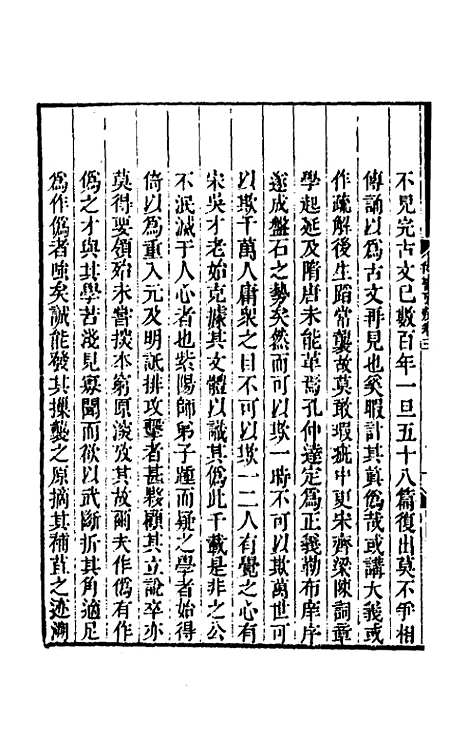 不見完古文已數百年一旦五十八篇復出莫不爭相
傳誦以爲古文再見也奚暇計其眞僞哉或講大義或
作疏解後生蹈常襲故莫敢瑕疵中更宋齊梁陳詞章
學起延及隋唐未能革焉孔仲達定爲正義勒布庠序
遂成盤石之勢矣然而可以欺一時不可以欺萬世可
以欺千萬人庸衆之目不可以欺一二人有覺之心有
宋吳才老始克據其文體以譏其僞此千載是非之公
不泯滅于人心者也紫陽師弟子踵而疑之學者始得
倚以爲重入元及明詆排攻擊者甚夥顧其立說卒亦
莫得要領始未嘗探本窮原深攷其故爾夫作僞有作
僞之才與其學苦淺見寡聞而欲以武斷折其角適足
爲作僞者嗤矣誠能發其摷襲之原摘其補苴之迹溯